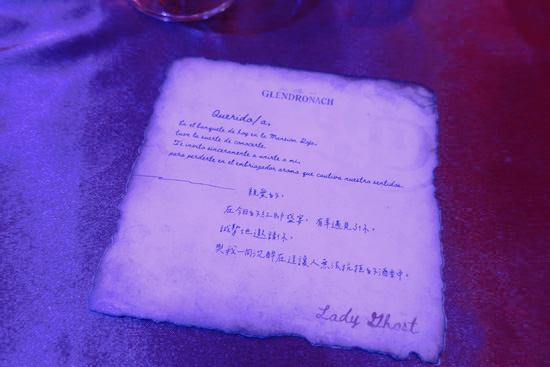 GLENDRONACH
Querido/a,
En el banquete de hoy en la Mansión Roja,
tuve la suerte de conocerte.
Te invito sinceramente a unirte a mí,
para perderte en el embriagador aroma que cautiva nuestro sentidos.
親愛的,
在今日的紅館盛宴,有幸遇見你,
誠摯地邀請你,
與我一同沉醉在這讓人無法抗拒的酒香中。
Lady Ghost